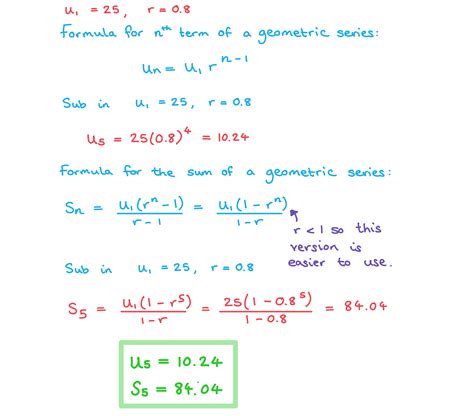 u₁ = 25, r = 0.8
Formula for nᵗʰ term of a geometric series:
Un = U₁ r ⁿ⁻¹
Sub in u₁ = 25, r = 0.8
U₅ = 25(0.8)⁴ = 10.24
Formula for the sum of a geometric series:
Sn = U₁(rⁿ-1)/r-1 = U₁(1-rⁿ)/1-r
r < 1 so this
version is
easier to use.
Sub in u₁ = 25, r = 0.8
S₅ = U₁(1-r⁵)/1-r = 25(1-0.8⁵)/1-0.8 = 84.04
U₅ = 10.24
S₅ = 84.04